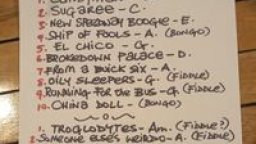 2. SUGAREE - C.
3. NEW SPEEDWAY BOOGIE - E.
4. SHIP OF FOOLS - A. (BONGO)
5. EL CHICO - G.
6. BROKEDOWN PALACE - D.
7. FROM A BUICK SIX - A.
8. OILY SLEEPERS - G. (FIDDLE)
9. RUNNING FOR THE BUS - G. (FIDDLE)
10. CHINA DOLL - (BONGO)
1. TROGLODYTES - Am. (FIDDLE?)
2. SOMEONE ELSES WEIRDO - A. (FIDDLE)